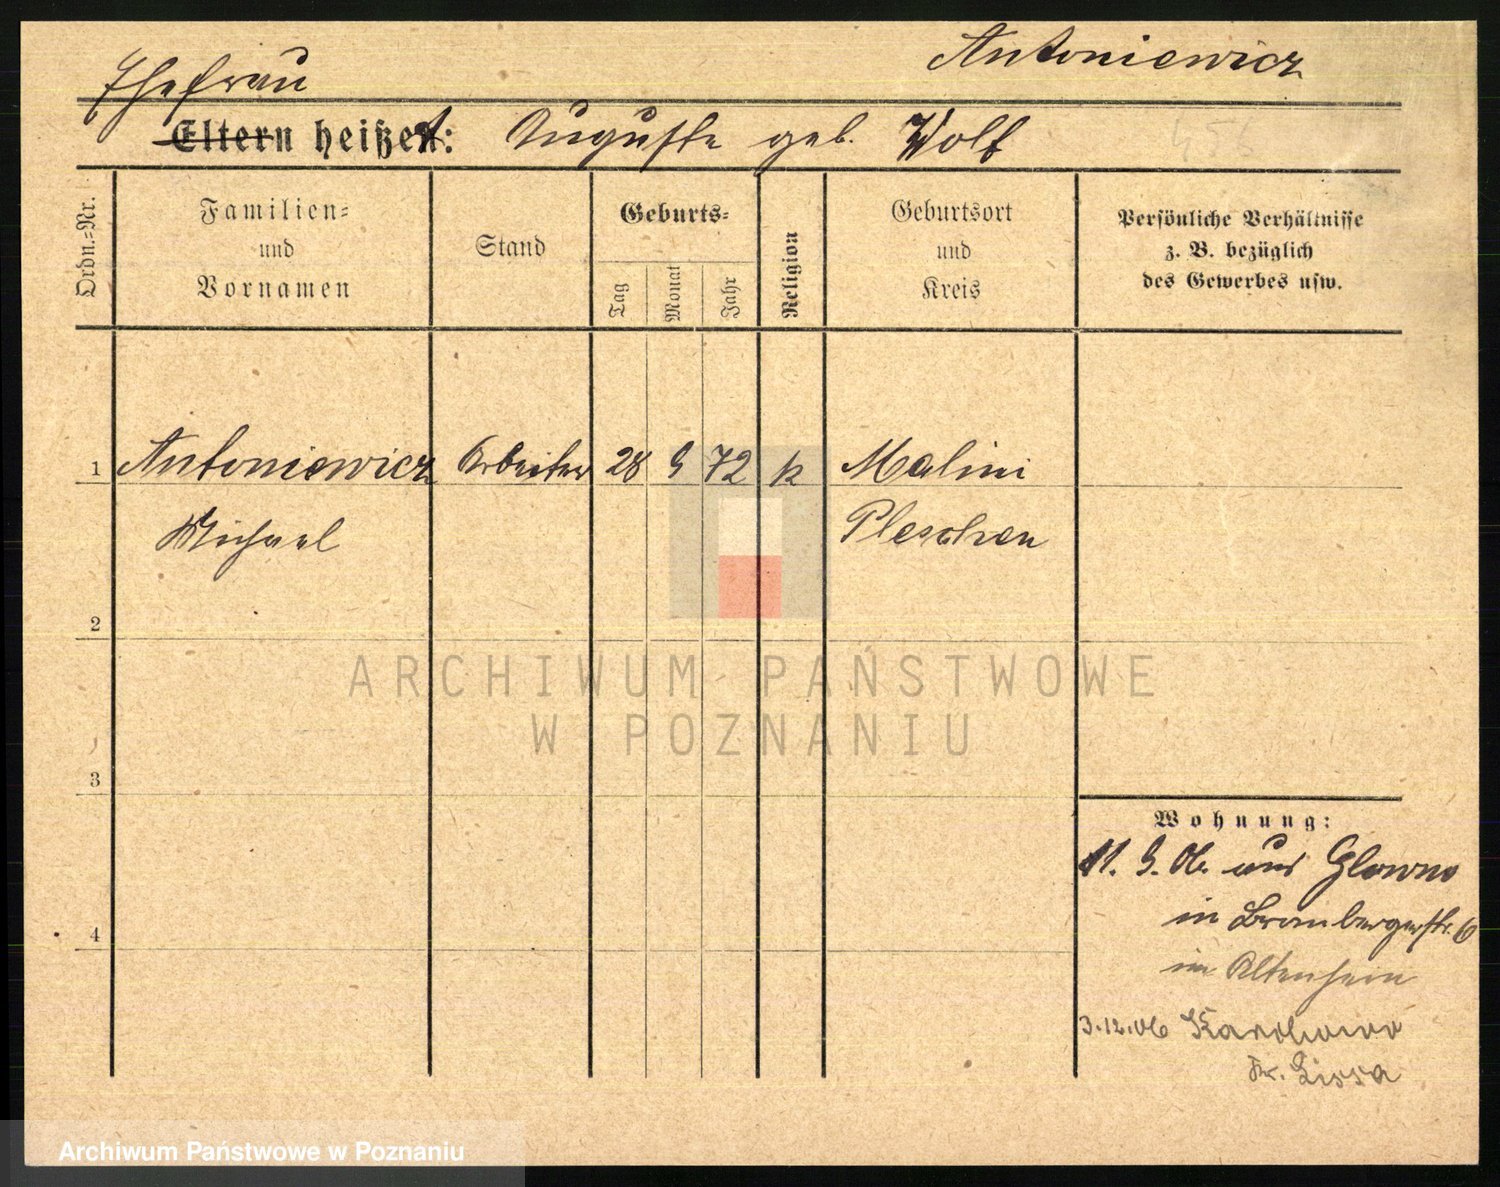 Antoniewicz
Ehefrau
Eltern heißen: Auguste geb. Wolf
Ordn.-Nr.
Familien-
und
Vornamen
Stand
Geburts-
Tag
Monat
Jahr
Religion
Geburtsort
und
Kreis
Persönliche Verhältnisse
z. B. bezüglich
des Gewerbes usw.
1 Antoniewicz Arbeiter 28 9 72 k Malini
Michael Pleschen
2
ARCHIWUM PAŃSTWOWE
W POZNANIU
3
Wohnung:
11. 9. 06. aus Glowno
in Brombergerstr. 6
im
4
3.12.06
Kr. Lissa
Archiwum Państwowe w Poznaniu